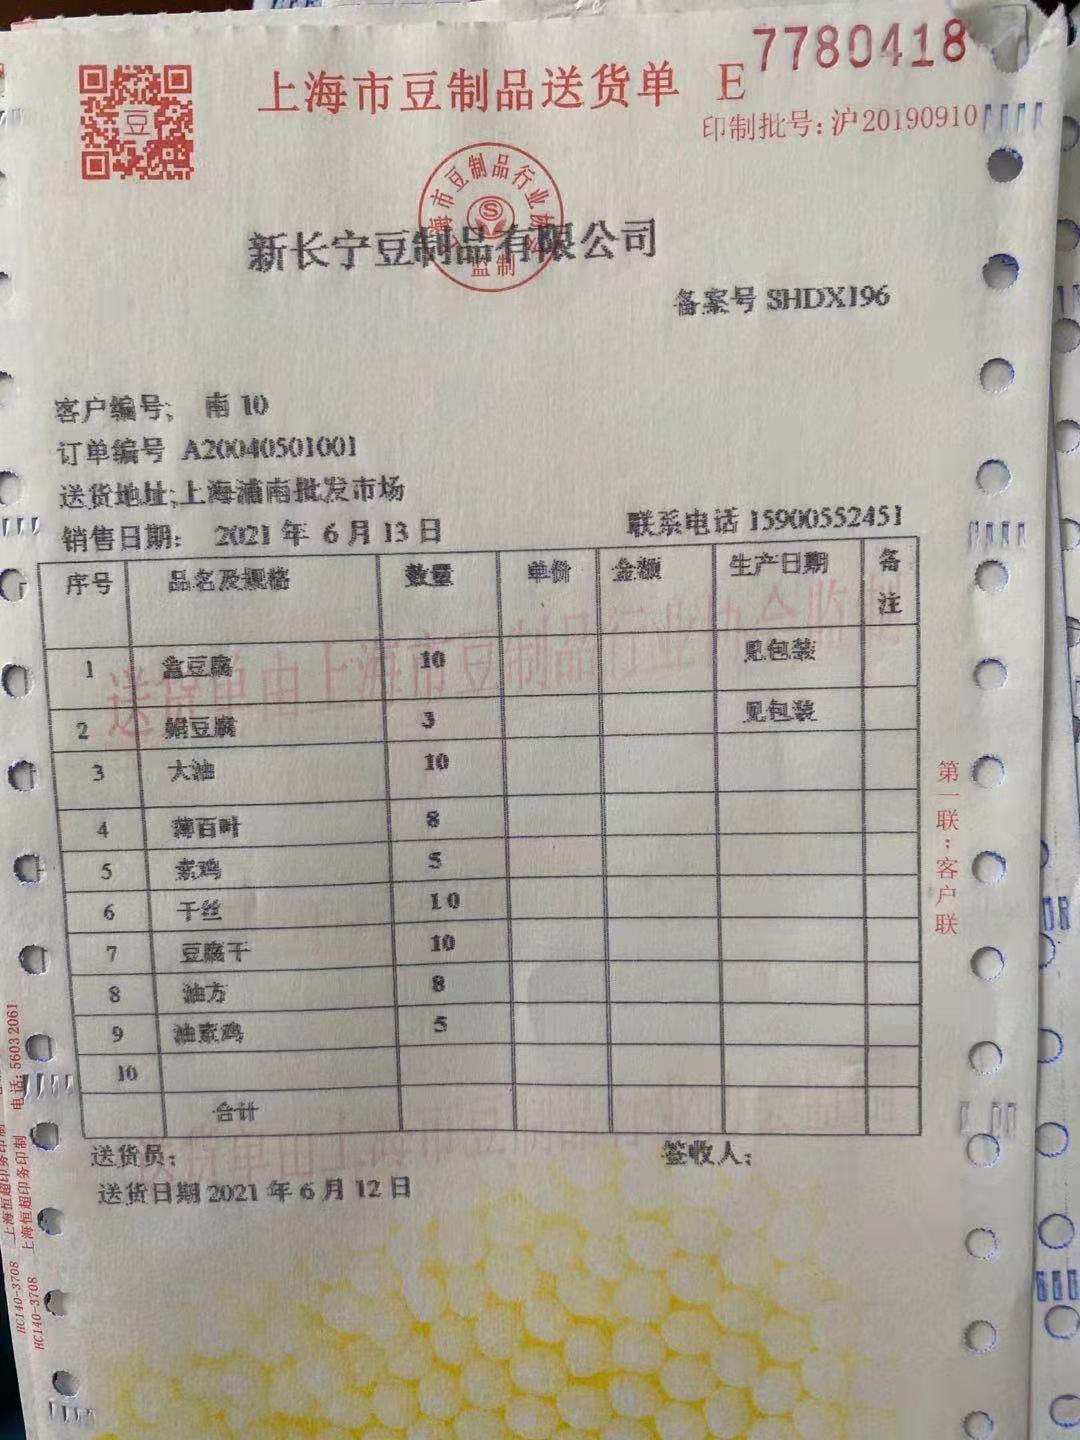 上海市豆制品送货单 E 7780418
印制批号:沪20190910
豆
上海市豆制品行业协会
监制
新长宁豆制品有限公司
备案号 SHDX196
客户编号; 南 10
订单编号 A20040501001
送货地址;上海浦南批发市场
销售日期: 2021 年 6 月 13 日 联系电话 15900552451
序号 品名及规格 数量 单价 金额 生产日期 备注
送货单由上海市豆制品行业协会监制
1 盒豆腐 10 见包装
2 绢豆腐 3 见包装
3 大油 10
4 薄百叶 8
5 素鸡 5
6 干丝 10
7 豆腐干 10
8 油方 8
9 油素鸡 5
10
合计
送货员; 签收人;
送货日期 2021 年 6 月 12 日
第一联:客户联
上海恒超印务印制 电话: 5603 2061
HC140-3708 上海恒超印务印制
HC140-3708